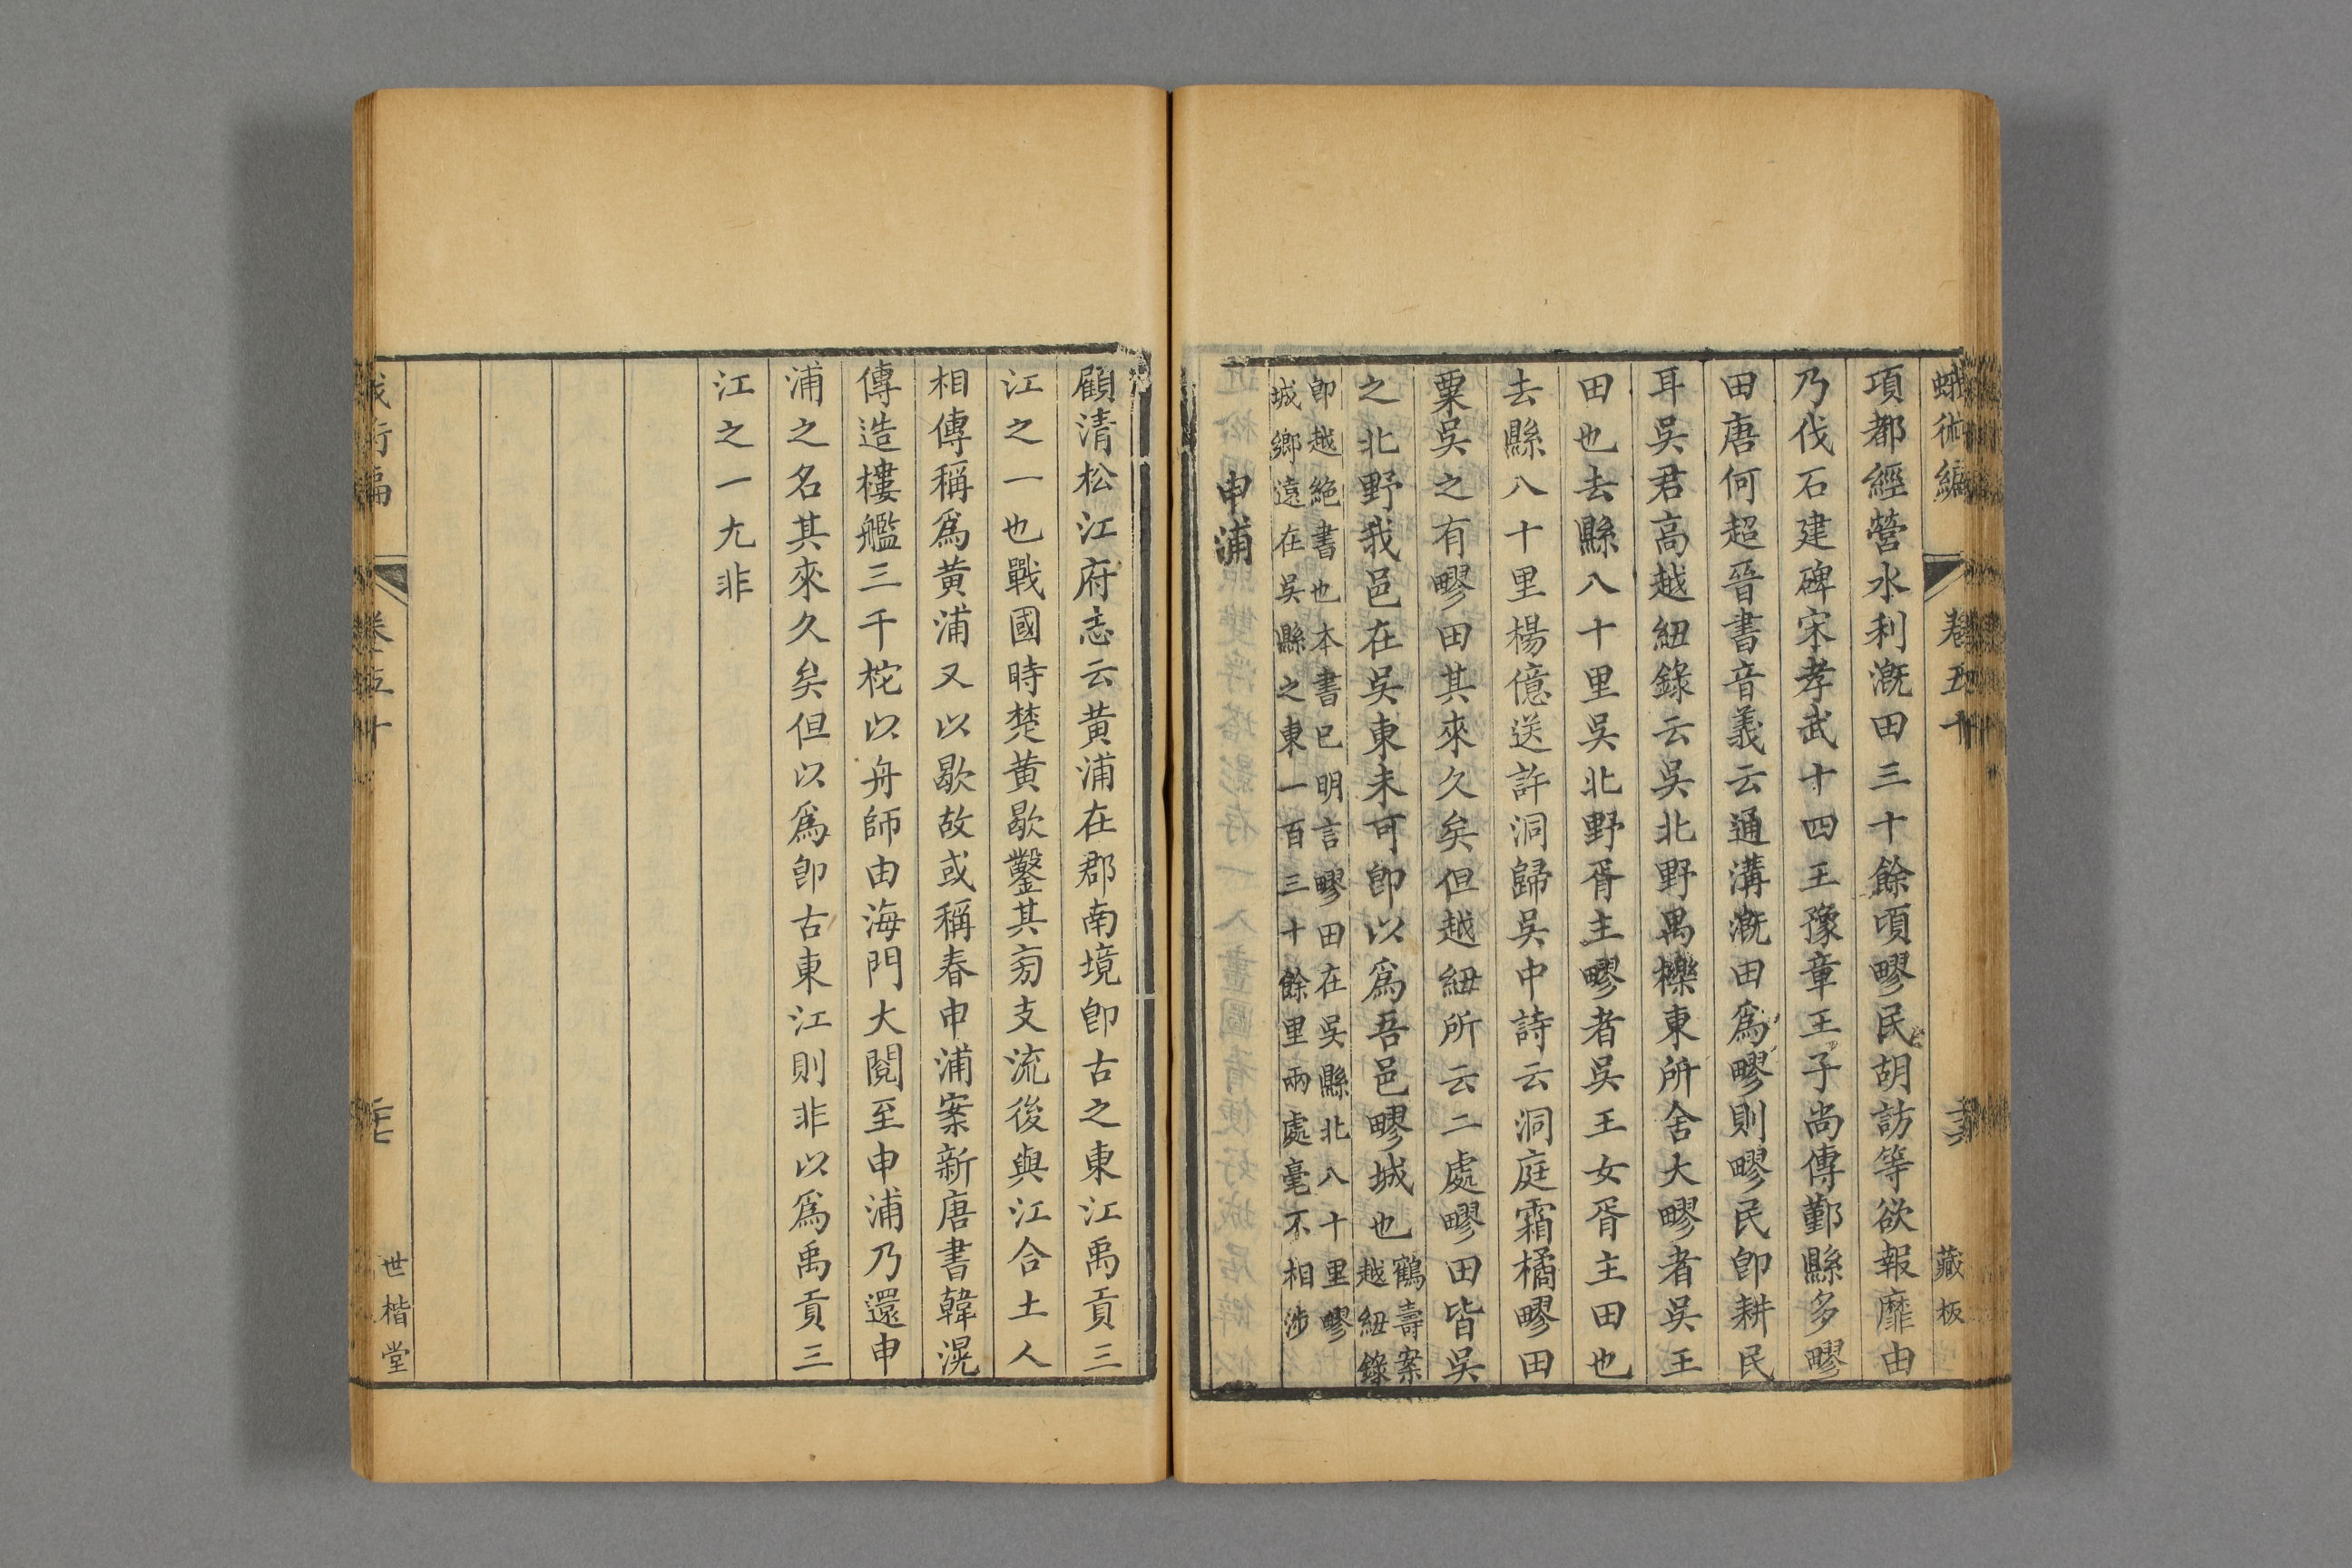 蛾術編 卷五十 藏板
項都經營水利漑田三十餘頃疁民胡訪等欲報靡由
乃伐石建碑宋孝武十四王豫章王子尚傳鄞縣多疁
田唐何超晉書音義云通溝漑田爲疁則疁民卽耕民
耳吳君高越紐錄云吳北野禺櫟東所舍大疁者吳王
田也去縣八十里吳北野胥主疁者吳王女胥主田也
去縣八十里楊億送許洞歸吳中詩云洞庭霜橘疁田
粟吳之有疁田其來久矣但越紐所云二處疁田皆吳
之北野我邑在吳東未可卽以爲吾邑疁城也鶴壽案
越紐錄
卽越絶書也本書已明言疁田在吳縣北八十里疁
城鄉遠在吳縣之東一百三十餘里兩處毫不相涉
申浦
顧清松江府志云黄浦在郡南境卽古之東江禹貢三
江之一也戰國時楚黄歇鑿其㫄支流後與江合土人
相傳稱爲黄浦又以歇故或稱春申浦案新唐書韓滉
傳造樓艦三千柁以舟師由海門大閱至申浦乃還申
浦之名其來久矣但以爲卽古東江則非以爲禹貢三
江之一尢非
卷五十 世楷堂